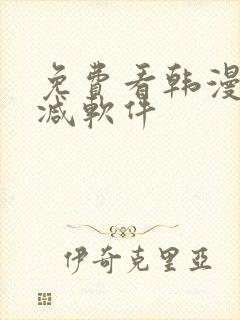 免費看韩漫
减軟件
伊奇克里亞